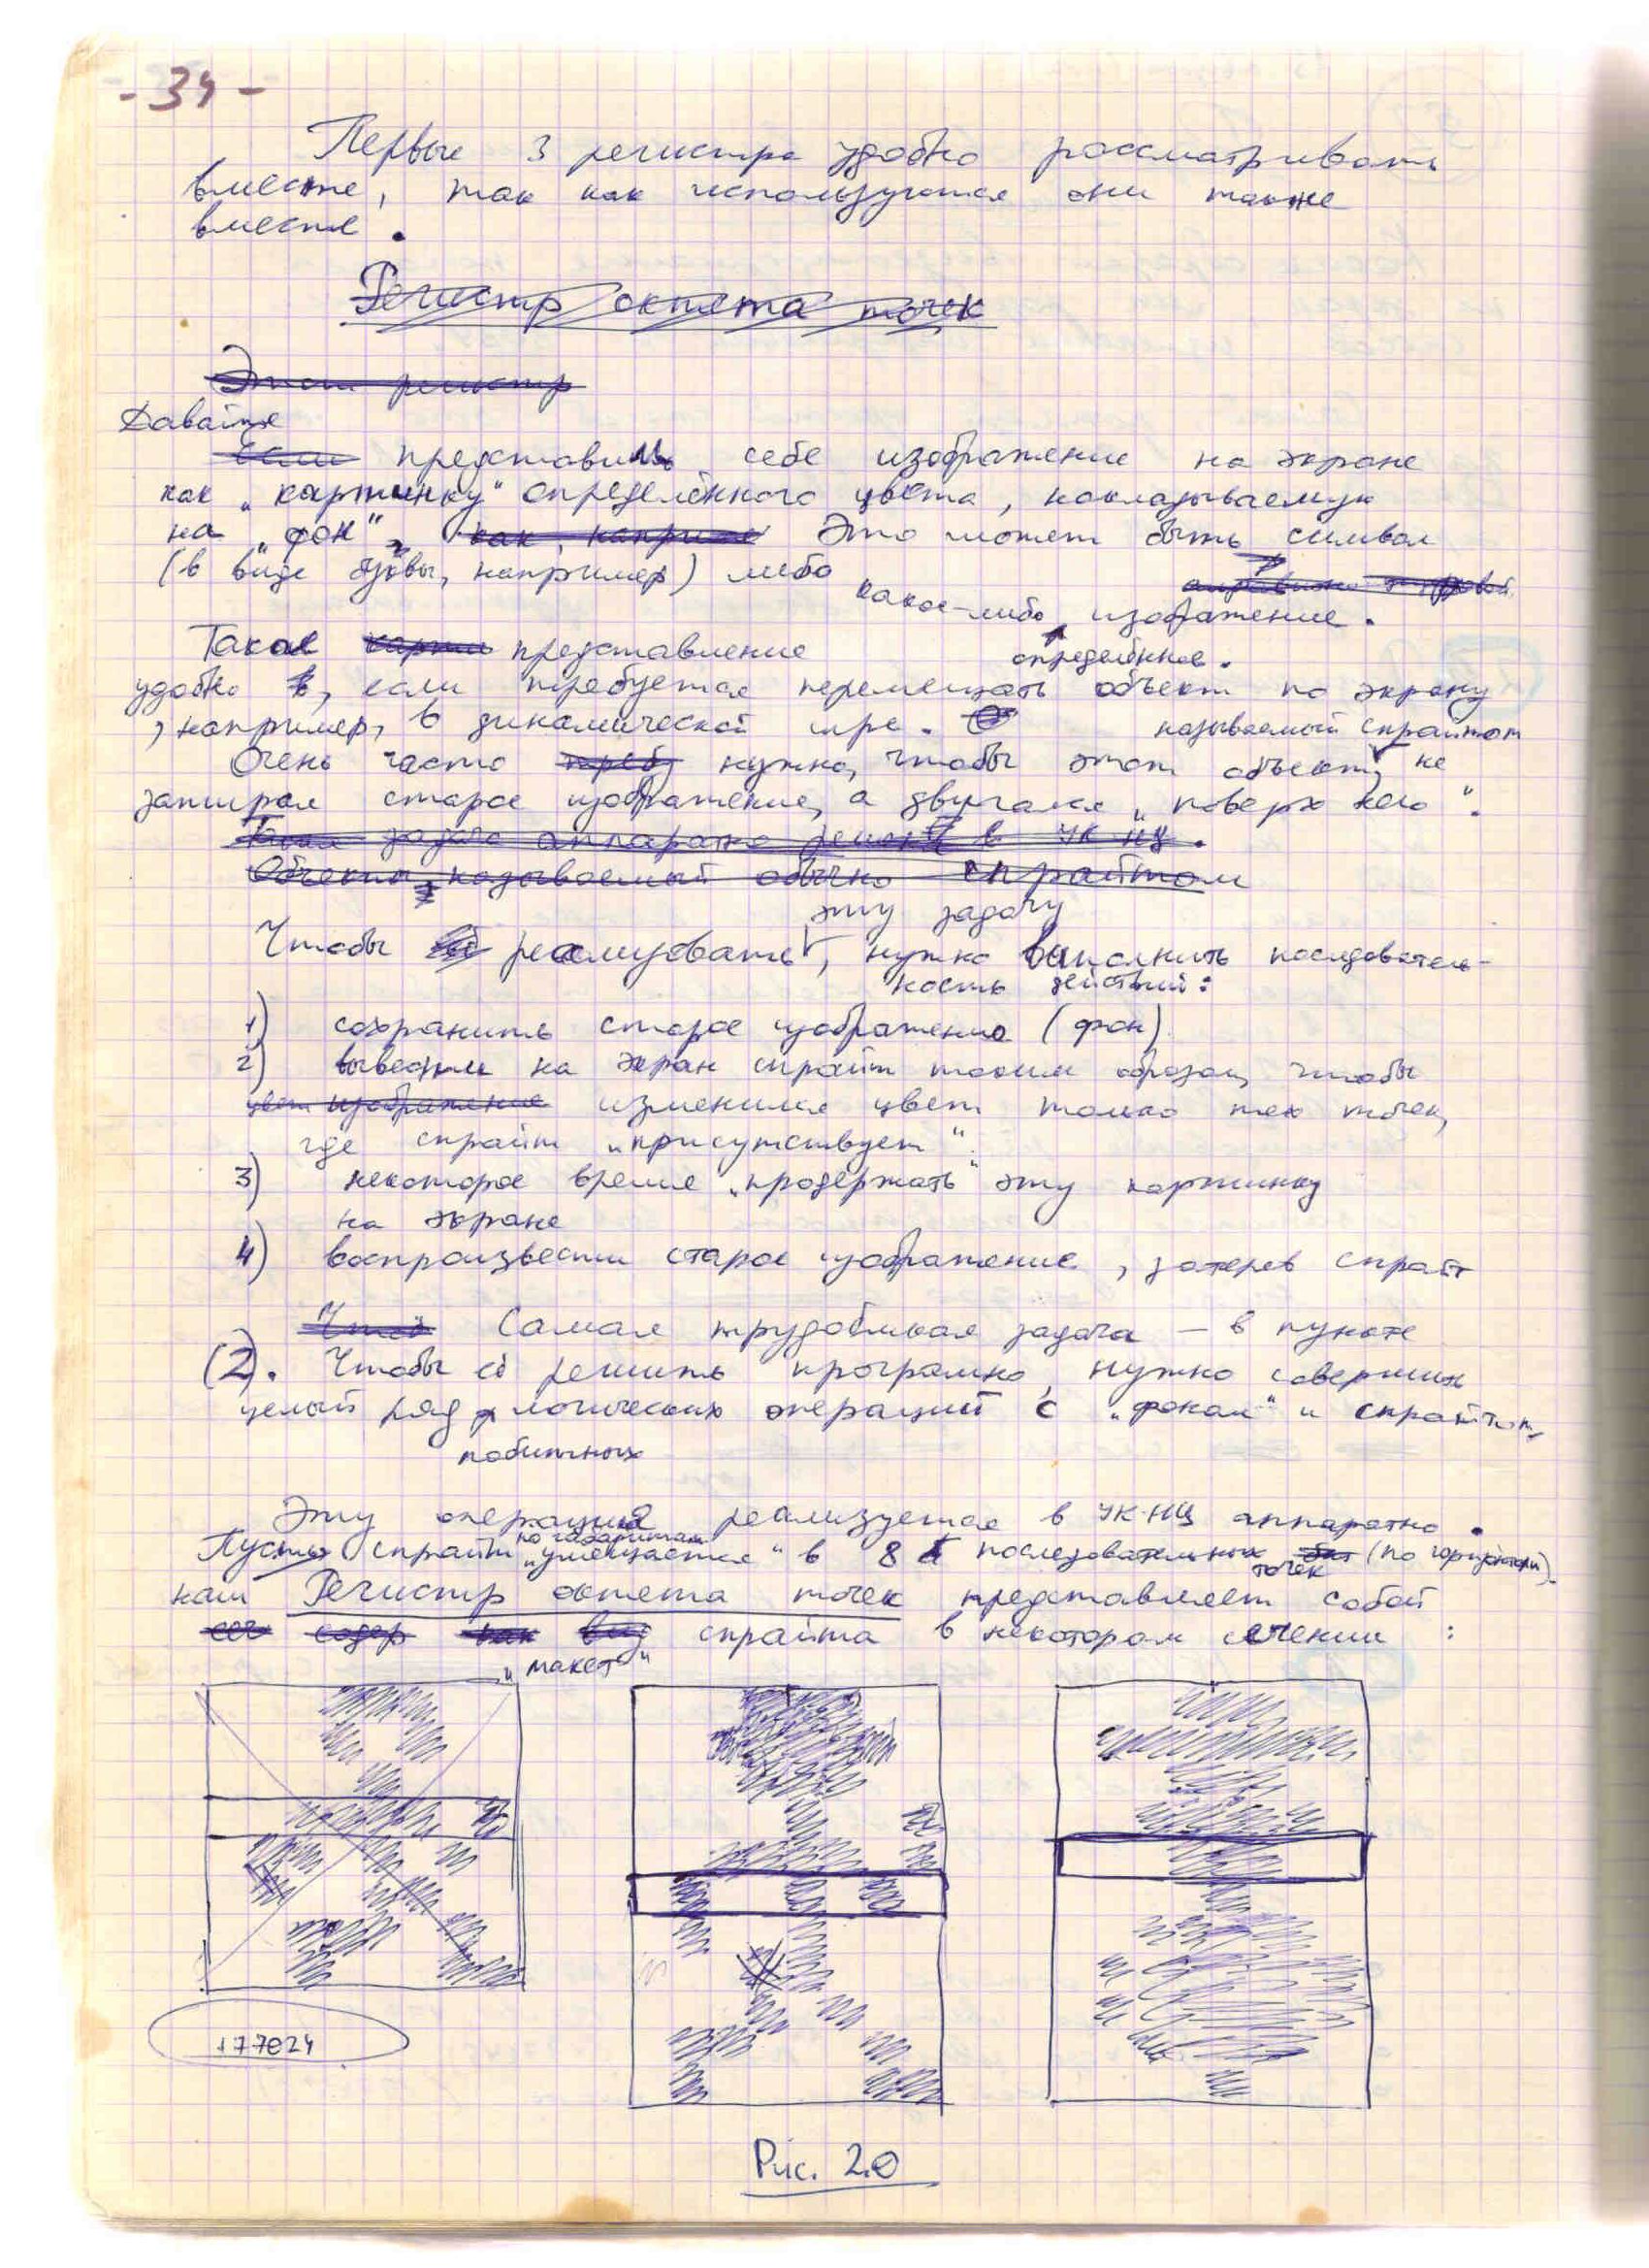 - 34 -
Первые 3 регистра удобно рассматривать
вместе, так как используются они также
вместе.
Регистр октета точек
Этот регистр
Давайте
Если представим себе изображение на экране
как „картинку" определённого цвета, накладываемую
на „фон". как, наприме Это может быть символ
(в виде буквы, например) либо
какое-либо изображение.
Такое карти представление
определённое.
удобно, если требуется перемещать объект по экрану
, например, в динамической игре.
называемый спрайтом
Очень часто треб нужно, чтобы этот объект не
затирал старое изображение, а двигался „поверх него".
Такая задача аппаратно решена в УК НЦ.
Объект, называемый обычно спрайтом
эту задачу
Чтобы реализовать, нужно выполнить последователь-
ность действий:
1) сохранить старое изображение (фон)
2) вывести на экран спрайт таким образом, чтобы
цвет изображения изменился цвет только тех точек,
где спрайт „присутствует"
3) некоторое время „продержать" эту картинку
на экране
4) воспроизвести старое изображение, затерев спрайт
Чтоб Самая трудоёмкая задача — в пункте
(2). Чтобы её решить програмно, нужно совершить
целый ряд логических операций с „фоном" и спрайтом,
побитных
Эту операция реализуется в УК-НЦ аппаратно.
по габаритам
Пусть спрайт „умещается" в 8 последовательных бит (по горизонтали).
точек
наш Регистр октета точек представляет собой
его содер как вид спрайта в некотором сечении :
„макет"
177024
Рис. 20